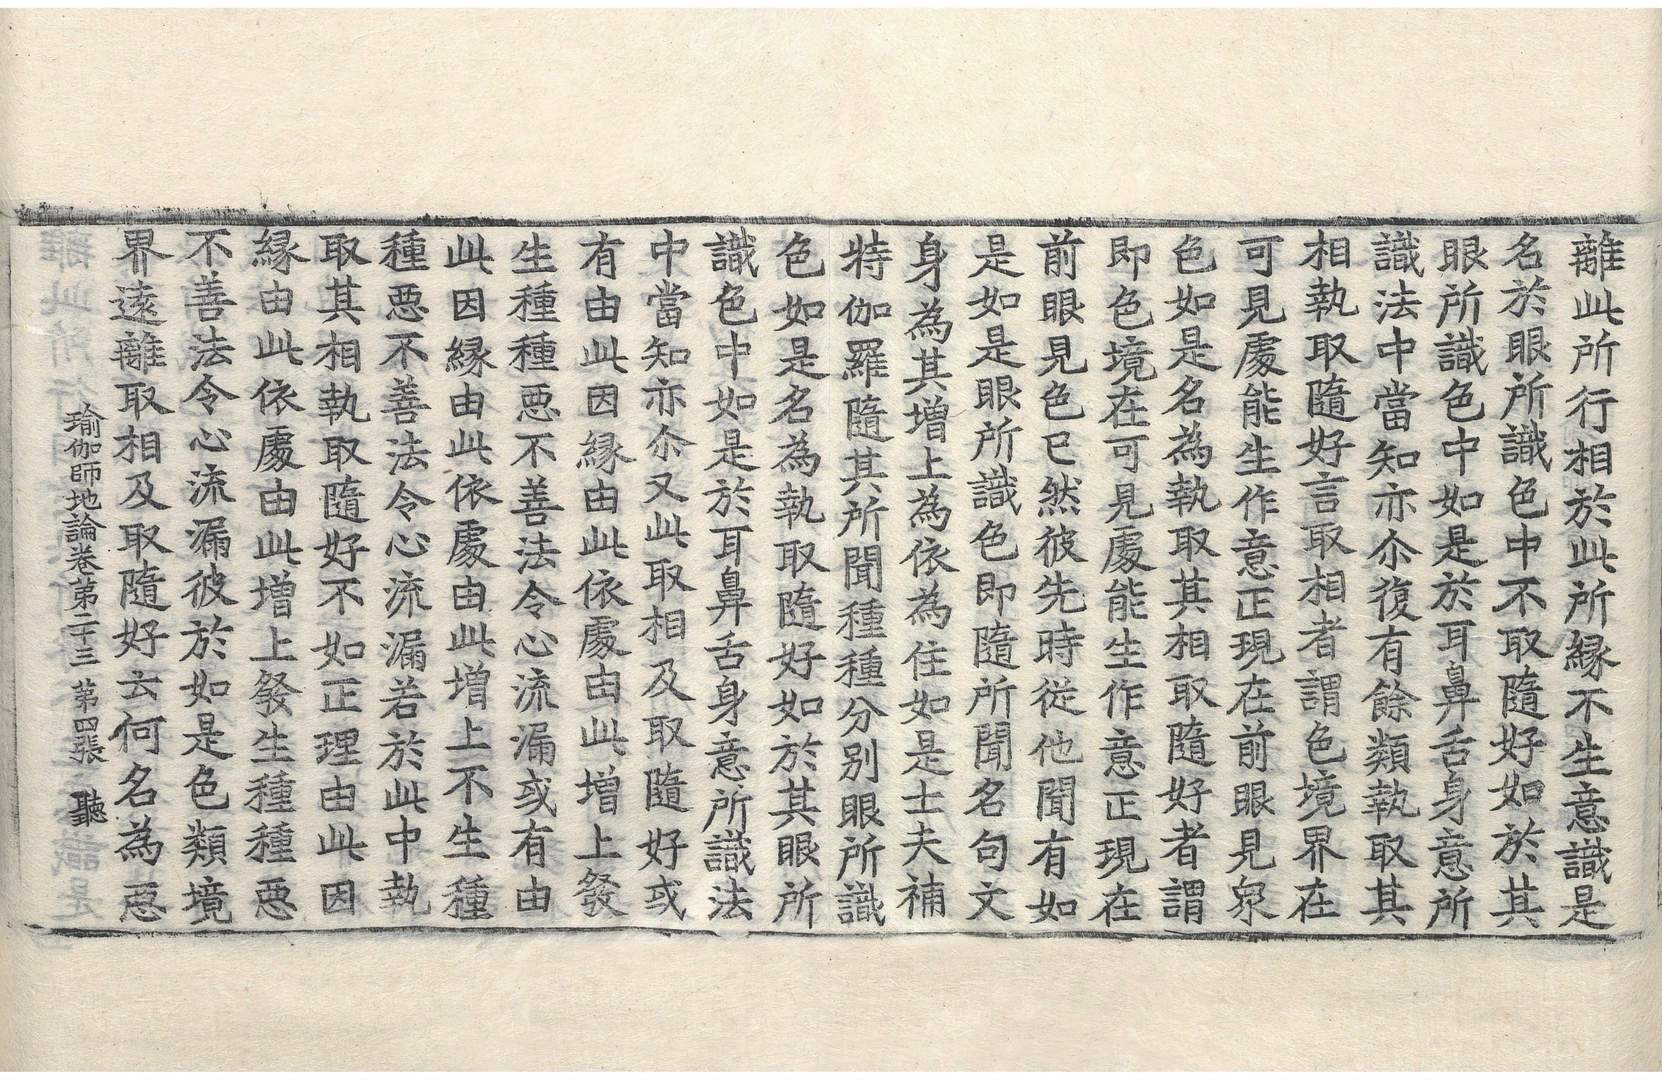 離此所行相於此所緣不生意識是
名於眼所識色中不取隨好如於其
眼所識色中如是於耳鼻舌身意所
識法中當知亦尒復有餘類執取其
相執取隨好言取相者謂色境界在
可見處能生作意正現在前眼見眾
色如是名為執取其相取隨好者謂
即色境在可見處能生作意正現在
前眼見色已然彼先時從他聞有如
是如是眼所識色即隨所聞名句文
身為其增上為依為住如是士夫補
特伽羅隨其所聞種種分別眼所識
色如是名為執取隨好如於其眼所
識色中如是於耳鼻舌身意所識法
中當知亦尒又此取相及取隨好或
有由此因緣由此依處由此增上發
生種種惡不善法令心流漏或有由
此因緣由此依處由此增上不生種
種惡不善法令心流漏若於此中執
取其相執取隨好不如正理由此因
緣由此依處由此增上發生種種惡
不善法令心流漏彼於如是色類境
界遠離取相及取隨好云何名為惡
瑜伽師地論卷第二十三 第四張 聽